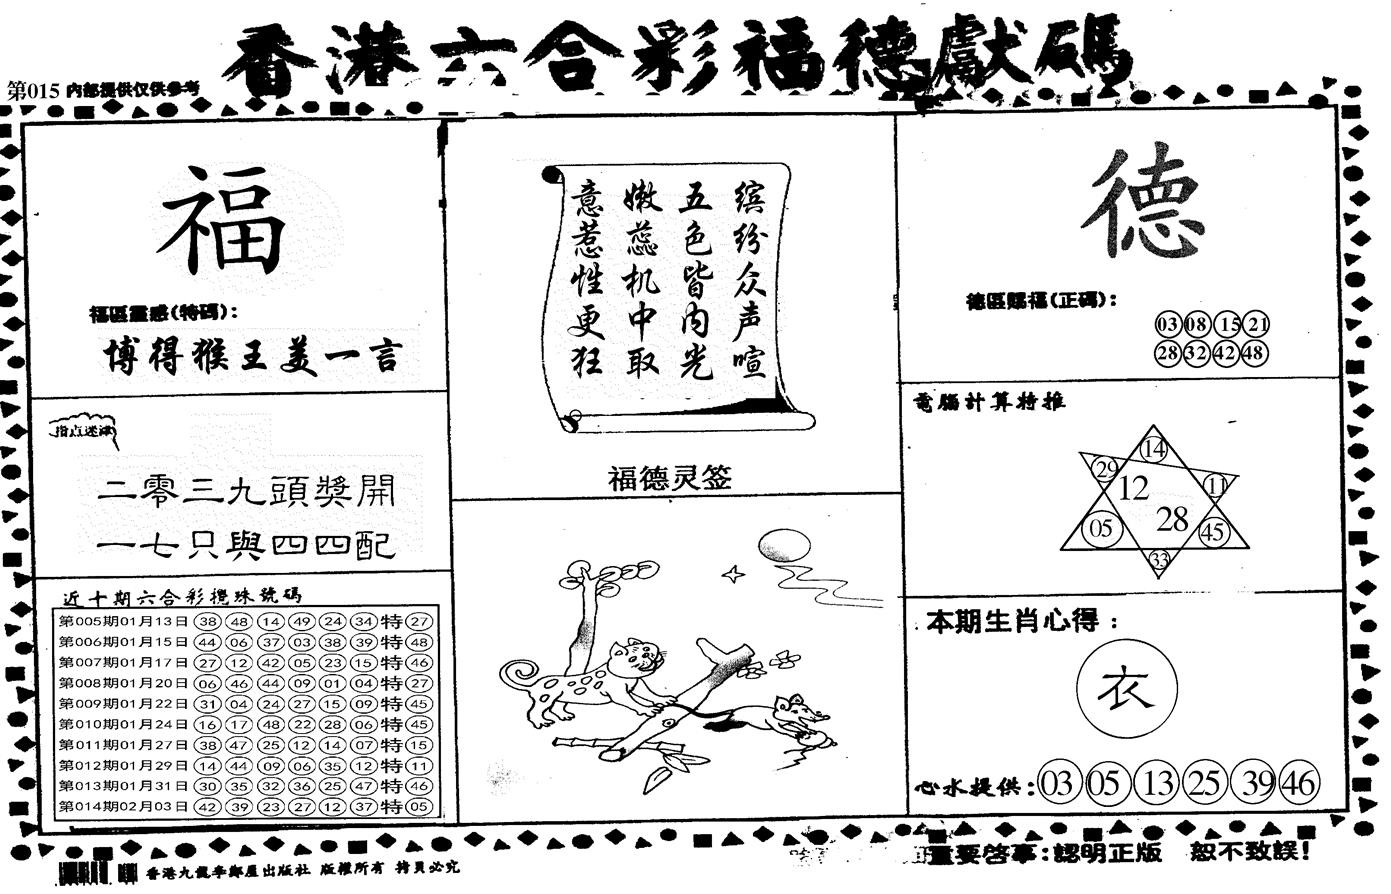 香港六合彩福德獻碼
第015 内部提供仅供参考
福
福區靈感(特碼):
博得猴王美一言
指点迷津
二零三九頭獎開
一七只與四四配
近十期六合彩攪珠號碼
第005期01月13日 38 48 14 49 24 34 特 27
第006期01月15日 44 06 37 03 38 39 特 48
第007期01月17日 27 12 42 05 23 15 特 46
第008期01月20日 06 46 44 09 01 04 特 27
第009期01月22日 31 04 24 27 15 09 特 45
第010期01月24日 16 17 48 22 28 06 特 45
第011期01月27日 38 47 25 12 14 07 特 15
第012期01月29日 14 44 09 06 35 12 特 11
第013期01月31日 30 35 32 36 25 47 特 46
第014期02月03日 42 39 23 27 12 37 特 05
缤纷众声喧
五色皆内光
嫩蕊机中取
意惹性更狂
福德灵签
德
德區賜福(正碼):
03 08 15 21
28 32 42 48
電腦計算特推
14
29 11
12
28
05 45
33
本期生肖心得:
衣
心水提供: 03 05 13 25 39 46
重要啓事:認明正版 恕不致誤!
香港九龍 出版社 版權所有 拷貝必究